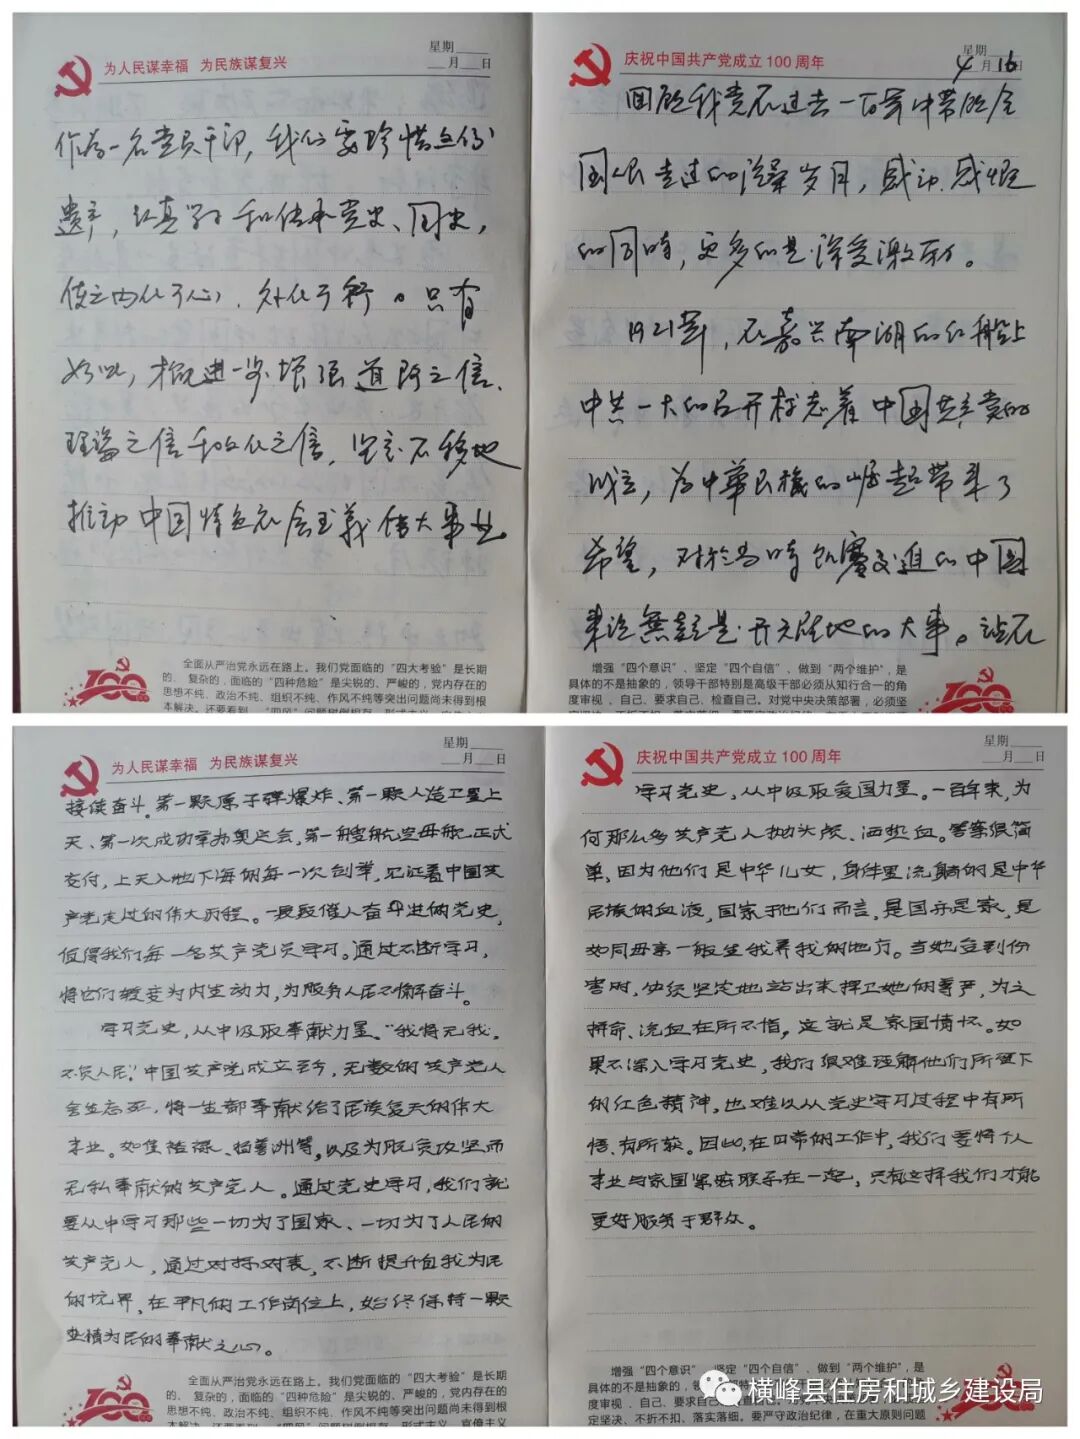 为人民谋幸福 为民族谋复兴
星期
月 日
作为一名党员干部,我们要珍惜这份
遗产,认真学习和传承党史、国史,
使之内化于心、外化于行。只有
如此,才能进一步增强道路自信、
理论自信和文化自信,坚定不移地
推动中国特色社会主義伟大事业
全面从严治党永远在路上。我们党面临的“四大考验”是长期
的、复杂的,面临的“四种危险”是尖锐的、严峻的,党内存在的
思想不纯、政治不纯、组织不纯、作风不纯等突出问题尚未得到根
庆祝中国共产党成立100周年
星期
4月16日
回顾我党在过去一百年中带领全
国人民走过的沧桑岁月,感动、感慨
的同时,更多的是深受激励。
1921年,在嘉兴南湖的红船上
中共一大的召开标志着中国共产党的
成立,为中華民族的崛起带来了
希望,对於当時饥寒交迫的中国
来说無疑是开天辟地的大事。站在
增强“四个意识”、坚定“四个自信”、做到“两个维护”,是
具体的不是抽象的,领导干部特别是高级干部必须从知行合一的角
度审视、自己、要求自己、检查自己。对党中央决策部署,必须坚
为人民谋幸福 为民族谋复兴
星期
月 日
接续奋斗。第一颗原子弹爆炸、第一颗人造卫星上
天、第一次成功举办奥运会,第一艘航空母舰正式
交付,上天入地下海的每一次创举,见证着中国共
产党走过的伟大历程。一段段催人奋斗进的党史,
值得我们每一名共产党员学习。通过不断学习,
将它们转变为内生动力,为服务人民不懈奋斗。
学习党史,从中汲取奉献力量。“我将无我,
不负人民”。中国共产党成立至今,无数的共产党人
舍生忘死,将一生都奉献给了民族复兴的伟大
事业。如焦裕禄、杨善洲等,以及为脱贫攻坚而
无私奉献的共产党人。通过党史学习,我们就
要从中学习那些一切为了国家、一切为了人民的
共产党人,通过对标对表,不断提升自我为民
的境界,在平凡的工作岗位上,始终保持一颗
赤情为民的奉献之心。
全面从严治党永远在路上。我们党面临的“四大考验”是长期
的、复杂的,面临的“四种危险”是尖锐的、严峻的,党内存在的
思想不纯、政治不纯、组织不纯、作风不纯等突出问题尚未得到根
庆祝中国共产党成立100周年
星期
月 日
学习党史,从中汲取爱国力量。一百年来,为
何那么多共产党人抛头颅、洒热血。答案很简
单,因为他们是中华儿女,身体里流躺的是中华
民族的血液,国家于他们而言,是国亦是家,是
如同母亲一般生我养我的地方。当她受到伤
害时,必须坚定地站出来捍卫她的尊严,为之
拼命、流血在所不惜,这就是家国情怀。如
果不深入学习党史,我们很难理解他们所留下
的红色精神,也难以从党史学习过程中有所
悟、有所获。因此,在日常的工作中,我们要将个人
事业与家国紧密联系在一起,只有这样我们才能
更好服务于群众。
增强“四个意识”、坚定“四个自信”、做到“两个维护”,是
具体的不是抽象的,领
度审视、自己、要求自己
定坚决、不折不扣、落实落细。要严守政治纪律,在重大原则问题
横峰县住房和城乡建设局